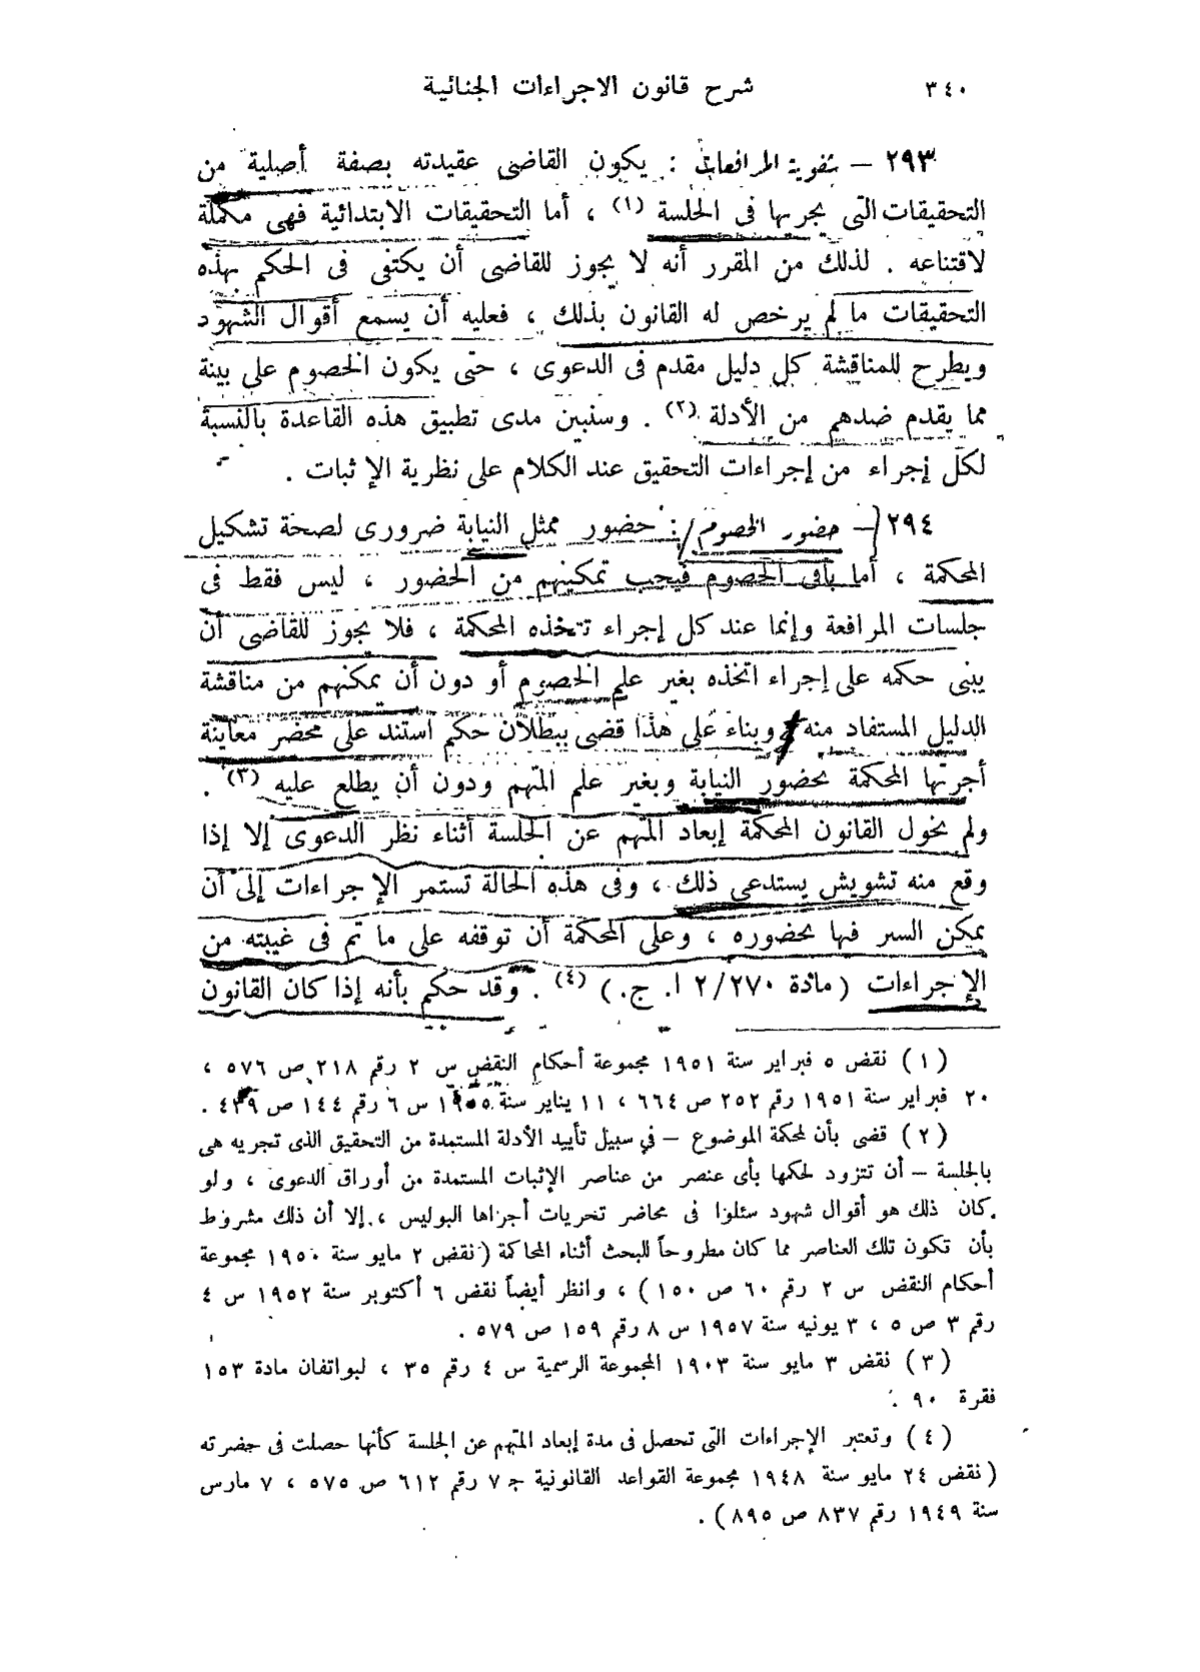 ٣٤٠ شرح قانون الاجراءات الجنائية
٢٩٣ – شفوية المرافعات : يكون القاضى عقيدته بصفة أصلية من
التحقيقات التى يجريها فى الجلسة (١) ، أما التحقيقات الابتدائية فهى مكملة
لاقتناعه . لذلك من المقرر أنه لا يجوز للقاضى أن يكتفى فى الحكم بهذه
التحقيقات ما لم يرخص له القانون بذلك ، فعليه أن يسمع أقوال الشهود
ويطرح للمناقشة كل دليل مقدم فى الدعوى ، حتى يكون الخصوم على بينة
مما يقدم ضدهم من الأدلة (٢) . وسنبين مدى تطبيق هذه القاعدة بالنسبة
لكل إجراء من إجراءات التحقيق عند الكلام على نظرية الإثبات .
٢٩٤ – حضور الخصوم : حضور ممثل النيابة ضرورى لصحة تشكيل
المحكمة ، أما باقى الخصوم فيجب تمكينهم من الحضور ، ليس فقط فى
جلسات المرافعة وإنما عند كل إجراء تتخذه المحكمة ، فلا يجوز للقاضى أن
يبنى حكمه على إجراء اتخذه بغير علم الخصوم أو دون أن يمكنهم من مناقشة
الدليل المستفاد منه وبناء على هذا قضى ببطلان حكم استند على محضر معاينة
أجرتها المحكمة بحضور النيابة وبغير علم المتهم ودون أن يطلع عليه (٣) .
ولم يخول القانون المحكمة إبعاد المتهم عن الجلسة أثناء نظر الدعوى إلا إذا
وقع منه تشويش يستدعى ذلك ، وفى هذه الحالة تستمر الإجراءات إلى أن
يمكن السير فيها بحضوره ، وعلى المحكمة أن توقفه على ما تم فى غيبته من
الإجراءات ( مادة ٢/٢٧٠ ا. ج. ) (٤) . وقد حكم بأنه إذا كان القانون
(١) نقض ٥ فبراير سنة ١٩٥١ مجموعة أحكام النقض س ٢ رقم ٢١٨ ص ٥٧٦ ،
٢٠ فبراير سنة ١٩٥١ رقم ٢٥٢ ص ٦٦٤ ، ١١ يناير سنة ١٩٥٥ س ٦ رقم ١٤٤ ص ٤٣٩ .
(٢) قضى بأن لمحكمة الموضوع – في سبيل تأييد الأدلة المستمدة من التحقيق الذى تجريه هى
بالجلسة – أن تتزود لحكمها بأى عنصر من عناصر الإثبات المستمدة من أوراق الدعوى ، ولو
كان ذلك هو أقوال شهود سئلوا فى محاضر تحريات أجراها البوليس ، إلا أن ذلك مشروط
بأن تكون تلك العناصر مما كان مطروحاً للبحث أثناء المحاكمة (نقض ٢ مايو سنة ١٩٥٠ مجموعة
أحكام النقض س ٢ رقم ٦٠ ص ١٥٠ ) ، وانظر أيضاً نقض ٦ أكتوبر سنة ١٩٥٢ س ٤
رقم ٣ ص ٥ ، ٣ يونيه سنة ١٩٥٧ س ٨ رقم ١٥٩ ص ٥٧٩ .
(٣) نقض ٣ مايو سنة ١٩٠٣ المجموعة الرسمية س ٤ رقم ٣٥ ، لبواتفان مادة ١٥٣
فقرة ٩٠ .
(٤) وتعتبر الإجراءات التى تحصل فى مدة إبعاد المتهم عن الجلسة كأنها حصلت فى حضرته
(نقض ٢٤ مايو سنة ١٩٤٨ مجموعة القواعد القانونية ج ٧ رقم ٦١٢ ص ٥٧٥ ، ٧ مارس
سنة ١٩٤٩ رقم ٨٣٧ ص ٨٩٥) .